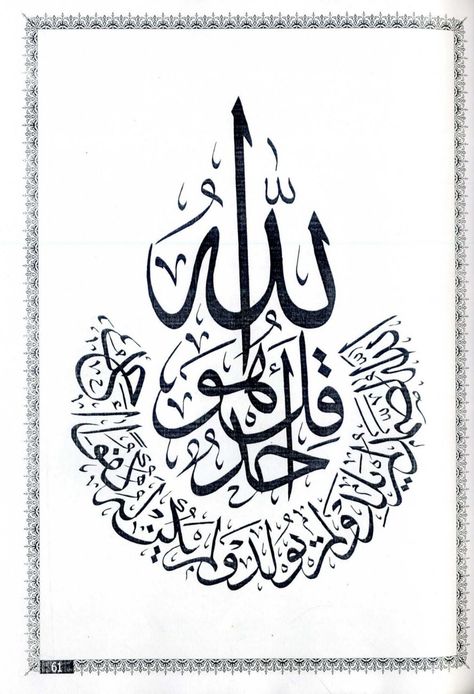 قل هو الله أحد
الله الصمد لم يلد ولم يولد ولم يكن له كفوا أحد
61